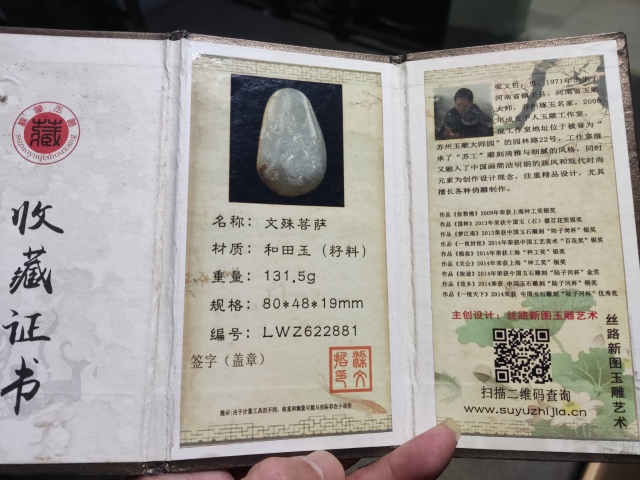 藏
suzuoyuqishouzang
收藏证书
名称：文殊菩萨
材质：和田玉（籽料）
重量：131.5g
规格：80*48*19mm
编号：LWZ622881
签字（盖章）
提示：由于计量工具的不同，称重和测量可能与实际存在小误差
梁文哲，男，1971年出生于
河南省镇平县，河南省玉雕
大师，苏州琢玉名家。2006
年成立个人玉雕工作室，
现工作室地址位于被誉为“
苏州玉雕大师园”的园林路22号，工作室继
承了“苏工”雕刻清雅与细腻的风格，同时
又融入了中国画简洁明朗的画风和现代时尚
元素为创作设计理念，注重精品设计，尤其
擅长各种俏雕制作。
作品《弥勒佛》2009年荣获上海神工奖银奖
作品《国粹》2013年荣获中国玉（石）器百花奖银奖
作品《梦江南》2013荣获中国玉石雕刻“陆子冈杯”银奖
作品《一夜封侯》2014年荣获中国工艺美术“百花奖”银奖
作品《晚妆》2014年荣获上海“神工奖”银奖
作品《关公》2014年荣获上海“神工奖”银奖
作品《旅途》2014年荣获中国玉石雕刻“陆子冈杯”金奖
作品《故乡》2014荣获 中国玉石雕刻“陆子冈杯”铜奖
作品《一统天下》2014荣获 中国玉石雕刻“陆子冈杯”优秀奖
主创设计：丝路新图玉雕艺术
扫描二维码查询
www.suyuzhijia.cn
丝路新图玉雕艺术